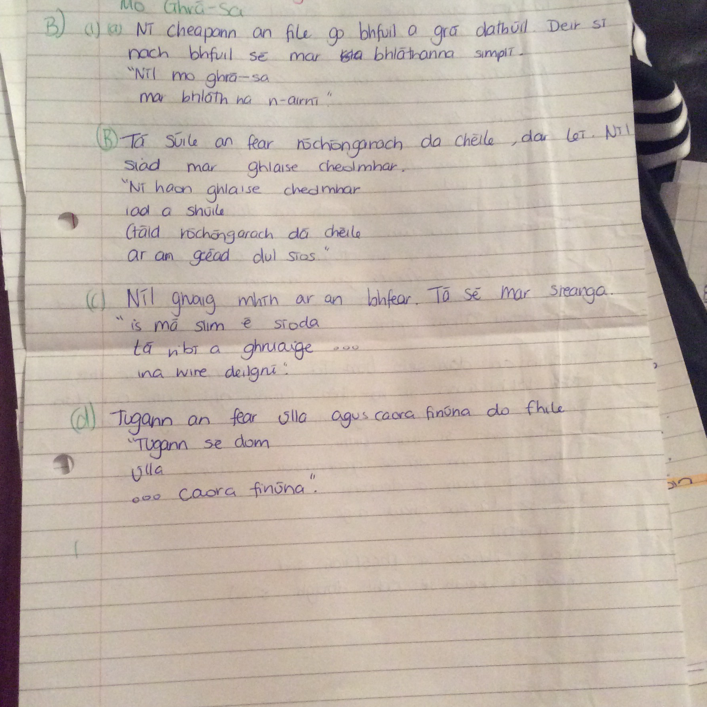 Mo Ghrá-sa
B) (i) (a) Ní cheapann an file go bhfuil a grá dathúil. Deir sí
nach bhfuil sé mar bhláthanna simplí.
"Níl mo ghrá-sa
mar bhláth na n-airní"
(B) Tá súile an fear róchóngarach da chéile, dar léi. Níl
siad mar ghlaise cheolmhar.
"Ní haon ghlaise cheolmhar
iad a shúile
(táid róchóngarach dá chéile
ar an gcéad dul síos"
(c) Níl gruaig mhín ar an bhfear. Tá sé mar sreanga.
"is má slim é síoda
tá ribí a ghruaige ...
ina wire deilgní".
(d) Tugann an fear úlla agus caora finúna do fhile
"Tugann se dom
úlla
... caora finúna".